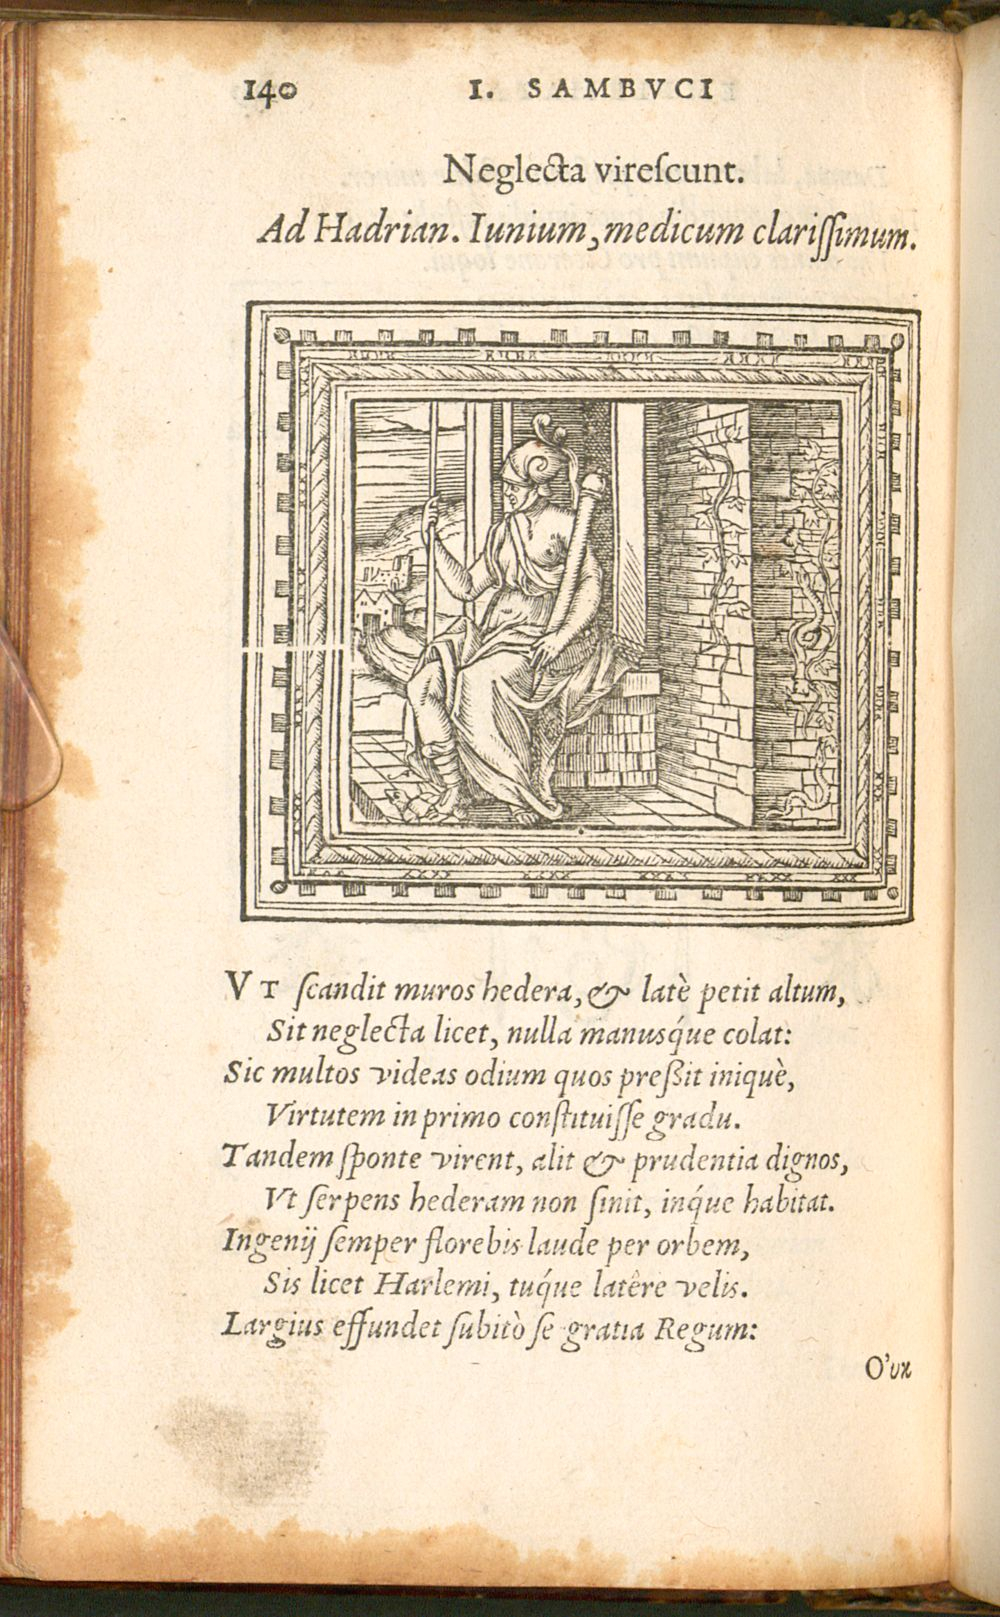 140 I. SAMBVCI
Neglecta vireſcunt.
Ad Hadrian. Iunium, medicum clariſſimum.
VT ſcandit muros hedera, & latè petit altum,
Sit neglecta licet, nulla manusq́ue colat:
Sic multos videas odium quos preßit iniquè,
Virtutem in primo conſtituiſſe gradu.
Tandem ſponte virent, alit & prudentia dignos,
Vt ſerpens hederam non ſinit, inq́ue habitat.
Ingenij ſemper florebis laude per orbem,
Sis licet Harlemi, tuq́ue latêre velis.
Largius effundet ſubitò ſe gratia Regum:
O’υκ